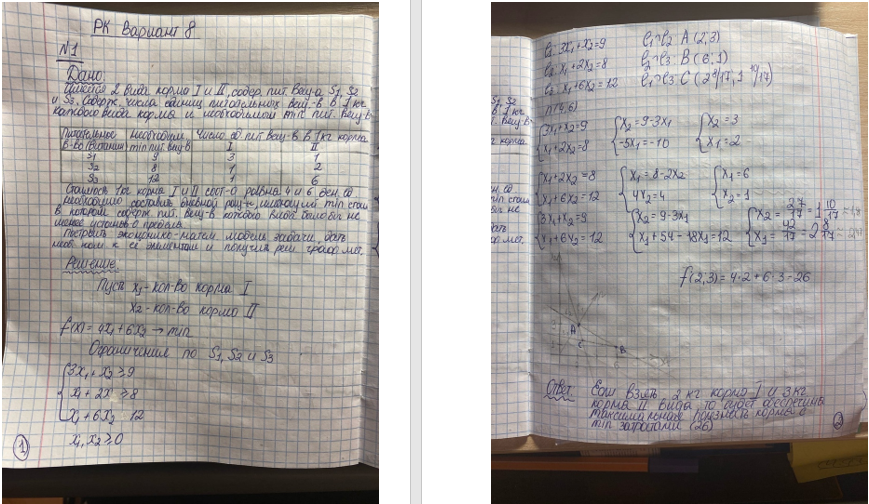 РК Вариант 8
N1
Дано:
Имеется 2 вида корма I и II, содер. пит. вещ-а S1, S2
и S3. Содерж. числа единиц питательных вещ-в в 1 кг
каждого вида корма и необходимом min пит. вещ-в
Питательное необходим. Число ед пит вещ-в в 1 кг корма
в-во (витамин) min пит. вещ-в I II
S1 9 3 1
S2 8 1 2
S3 12 1 6
Стоимость 1 кг корма I и II соот-о равна 4 и 6 ден. ед
необходимо составить дневной рац-н, имеющий min стоим
в котором содерж пит. вещ-в каждого вида было бы не
менее установ-о предела.
Построить экономико-матем. модель задачи, дать
к ее элементам и получить реш граф. мет.
Решение:
Пусть x1 - кол-во корма I
x2 - кол-во корма II
f(x) = 4x1 + 6x2 → min
Ограничения по S1, S2 и S3
3x1 + x2 ≥ 9
x1 + 2x ≥ 8
x1 + 6x2 12
x1, x2 ≥ 0
1
l1: 3x1 + x2 = 9 l1∩l2 A (2,3)
l2: x1 + 2x2 = 8 l2∩l3: B (6,1)
x1 + 6x2 = 12 l1∩l3: C (2 8/17, 1 10/17)
n(4,6)
3x1 + x2 = 9 x2 = 9-3x1 x2 = 3
x1 + 2x2 = 8 -5x1 = -10 x1 = 2
x1 + 2x2 = 8 x1 = 8-2x2 x1 = 6
x1 + 6x2 = 12 4x2 = 4 x2 = 1
3x1 + x2 = 9 x2 = 9-3x1 x2 = 27/17 = 1 10/17
x1 + 6x2 = 12 x1 + 54 - 18x1 = 12 x1 = 42/17 = 2 8/17
f(2,3) = 4·2 + 6·3 = 26
A
C
B
Ответ: Если взять 2 кг корма I и 3 кг
корма II вида, то будет обеспечена
максимальная корма с
min затратами (26)
2